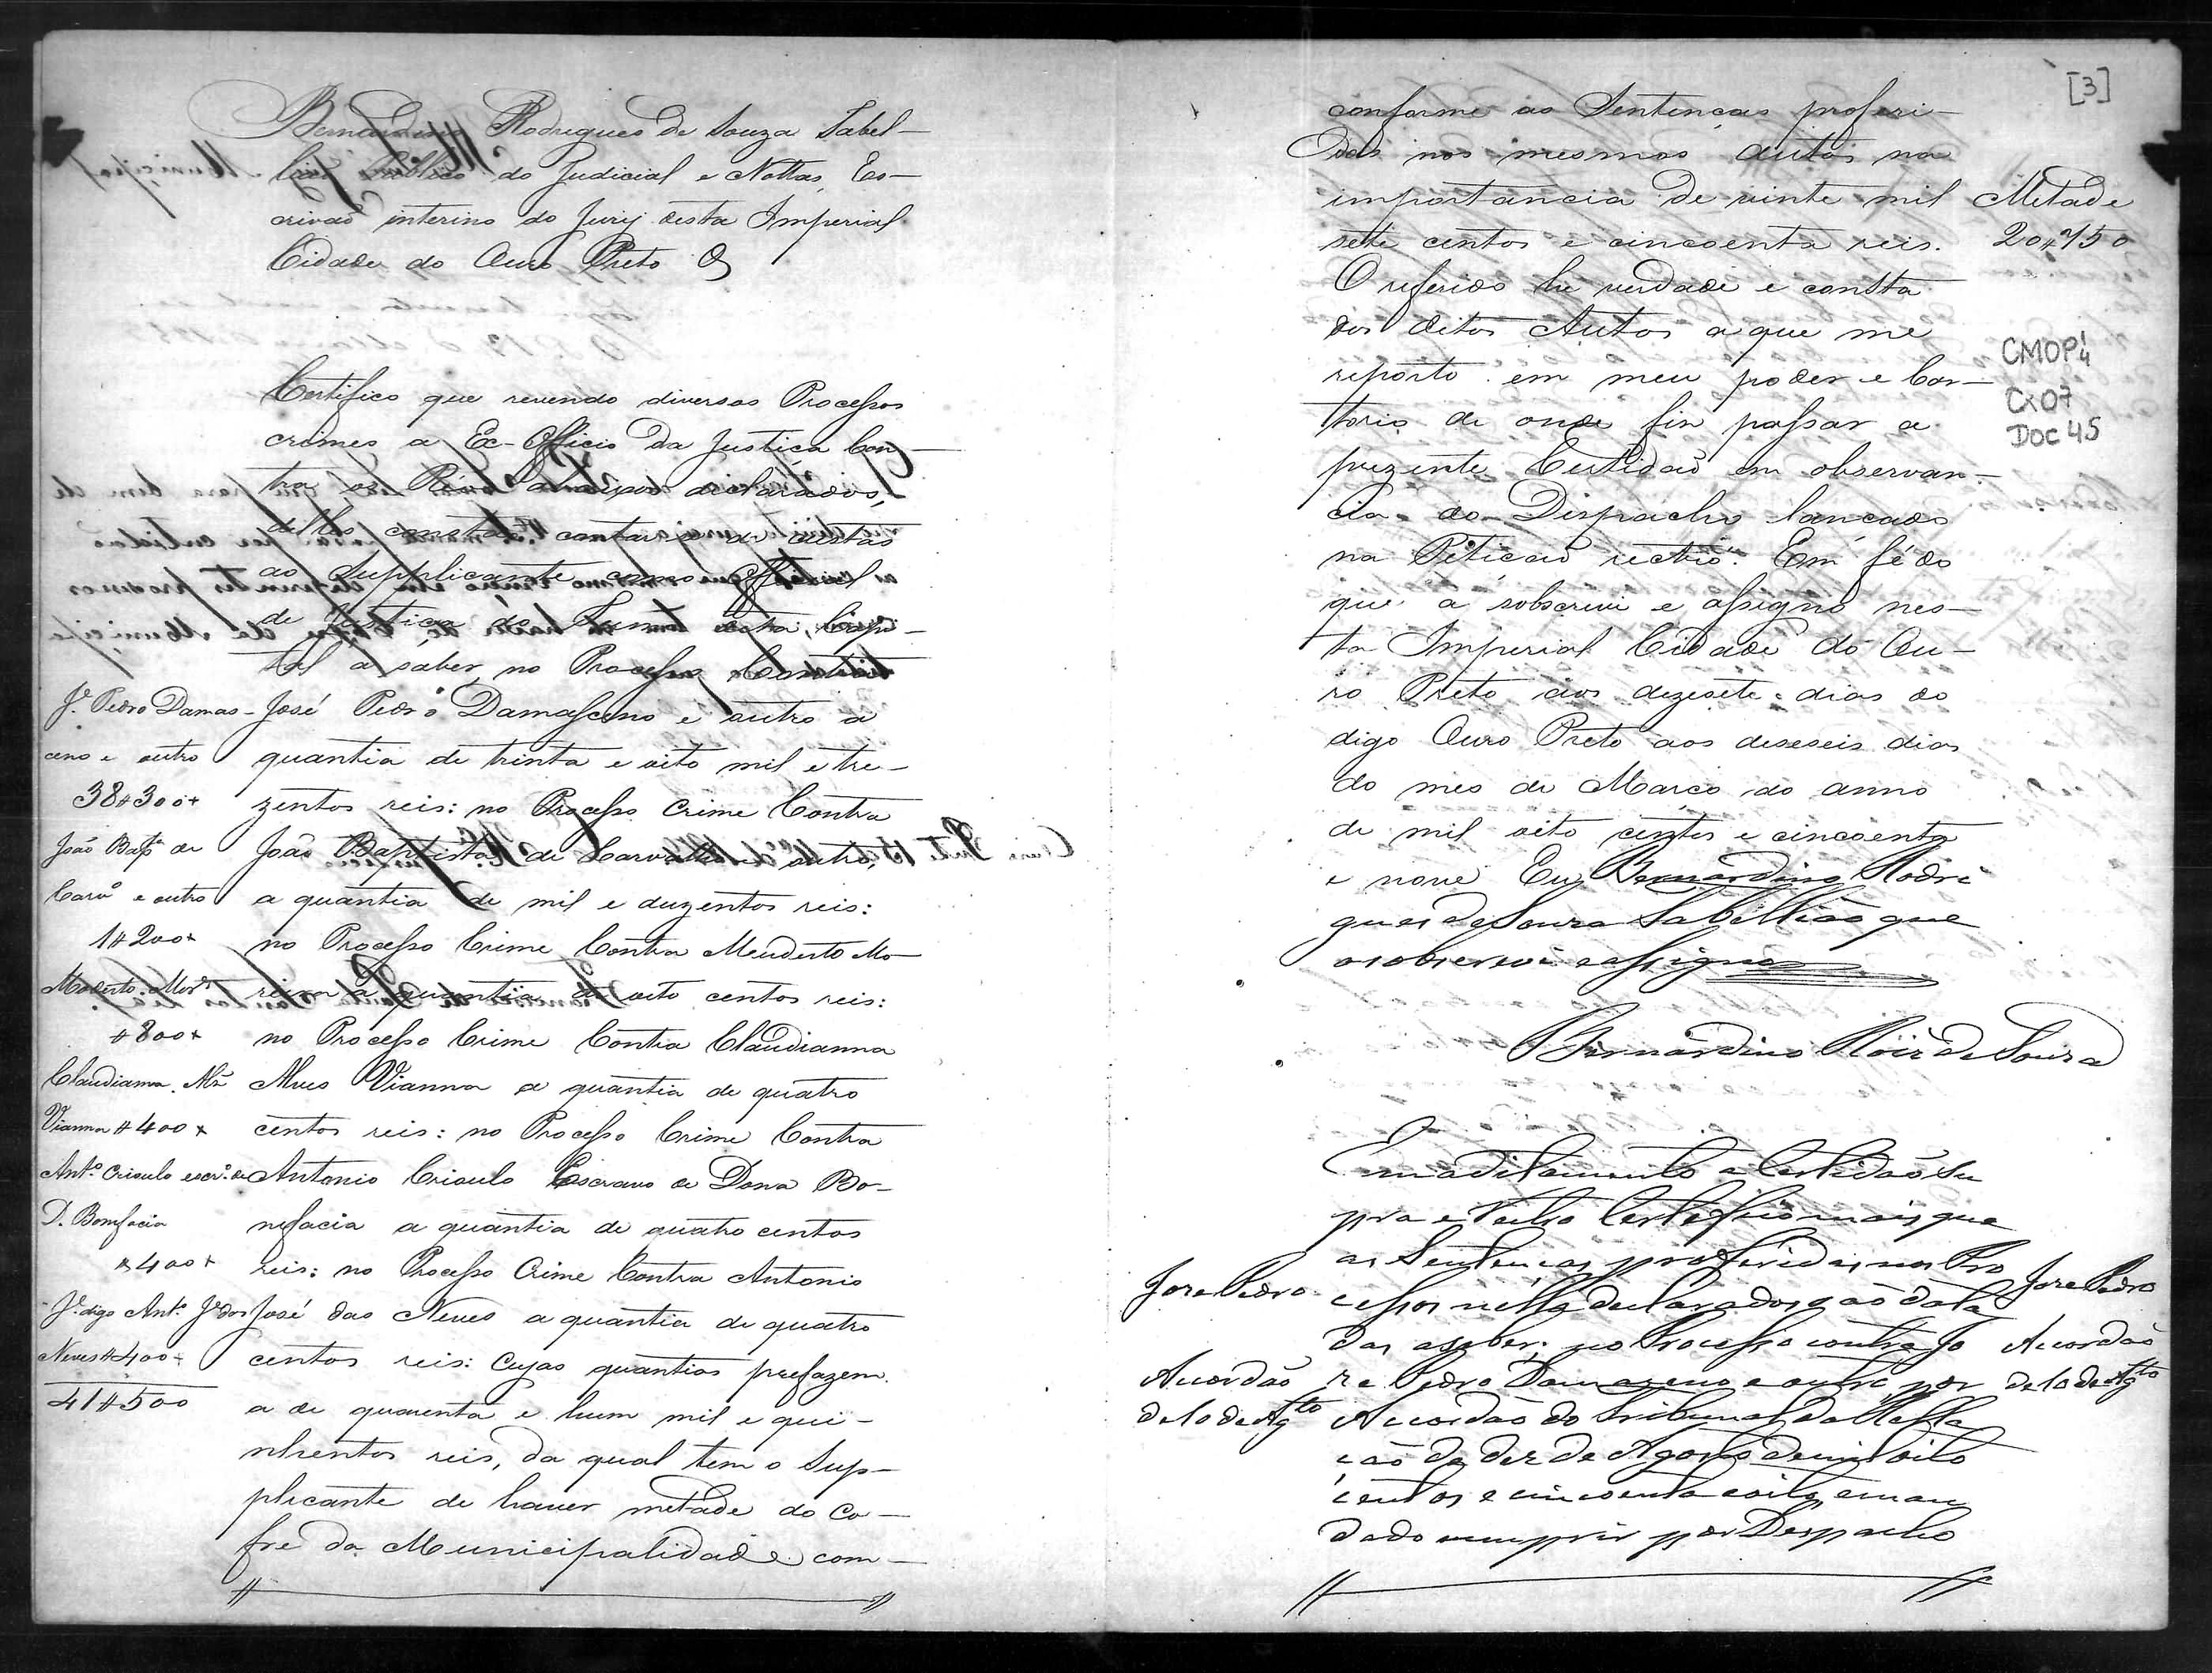 Bernardino Rodrigues de Souza Tabel-
liaõ Publico do Judicial e Nottas, Es-
crivaõ interino do Jury desta Imperial
Cidade do Ouro Preto &
Certifico que revendo diversos Processos
crimes a Ex-Officio da Justiça Con-
tra os Réos abaixo declarados,
delles consta contar-se de custas
ao Supplicante como Official
de Justiça do Juizo desta Capi-
tal a saber, no Processo Contra
José Pedro Damasceno e outro a
quantia de trinta e oito mil e tre-
zentos reis: no Processo Crime Contra
João Baptista de Carvalho e outro,
a quantia de mil e duzentos reis:
no Processo Crime Contra Meudesto Mo-
reira a quantia de oito centos reis:
no Processo Crime Contra Claudianna
Alves Vianna a quantia de quatro
centos reis: no Processo Crime Contra
Antonio Crioulo Escravo de Dona Bo-
nefacia a quantia de quatro centos
reis: no Processo Crime Contra Antonio
José das Neves a quantia de quatro
centos reis: Cujas quantias prefazem
a de quarenta e hum mil e qui-
nhentos reis, da qual tem o Sup-
plicante de haver metade do Co-
fre da Municipalidade com-
Je. Pedro Damas-
ceno e outro
38#300
João Bapta. de
Carvo. e outro
1#200
Modesto Mora.
#800
Claudianna Alz
Vianna #400
Anto. Crioulo escro. de
D. Bonefacia
#400
Je. digo Anto. Je. das
Neves #400
41#500
[3]
conforme as Sentenças proferi-
das nos mesmos autos na
importancia de vinte mil
sete centos e cincoenta reis.
O referido he verdade e consta
dos ditos Autos a que me
reporto em meu poder e Car-
torio de onde fiz passar a
prezente Certidaõ em observan-
cia do Dispacho lançado
na Petiçaõ rectro. Em fé do
que a sobscrevi e assigno nes-
ta Imperial Cidade do Ou-
ro Preto aos dezesete dias do
digo Ouro Preto aos deseseis dias
do mes de Março do anno
de mil oito centos e cincoenta
e nove Eu Bernardino Rodri
gues de Souza Tabelliaõ que
osobscrevi e assigno
Bernardino Roiz de Souza
Metade
20#750
CMOP
Cx 07
DOC 45
Em aditamento a Certidaõ su
pra e rectro Certefico mais que
as Sentenças proferidas nos Pro
cessos nella declarados saõ data
das a saber: no Processo contra Jo
ze Pedro Damazeno e outro por
Acordaõ do Tribunal da Rella
çaõ de dez de Agosto de mil oito
centos e cincoenta e oito, e man
dado cumprir por Despacho
Joze Pedro
Acordaõ
de 10 de Agto
Joze Pedro
Acordaõ
de 10 de Agto